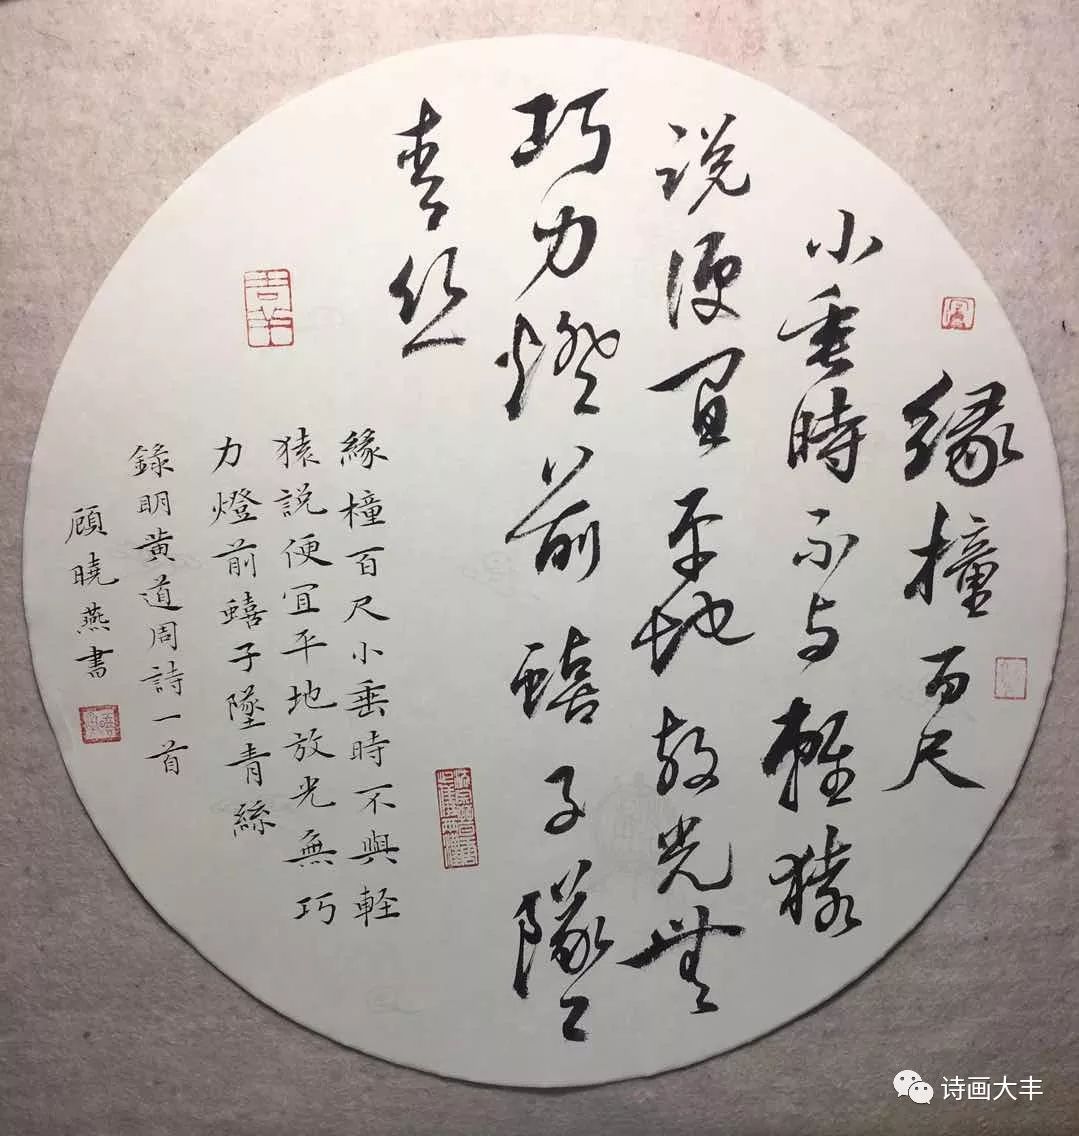 緣橦百尺
小垂時不与輕猿
説便宜平地放光無
巧力燈前蟢子墜
青丝
緣橦百尺小垂時不與軽
猿説便宜平地放光無巧
力燈前蟢子墜青絲
錄明黄道周詩一首
顧曉燕書
诗画大丰